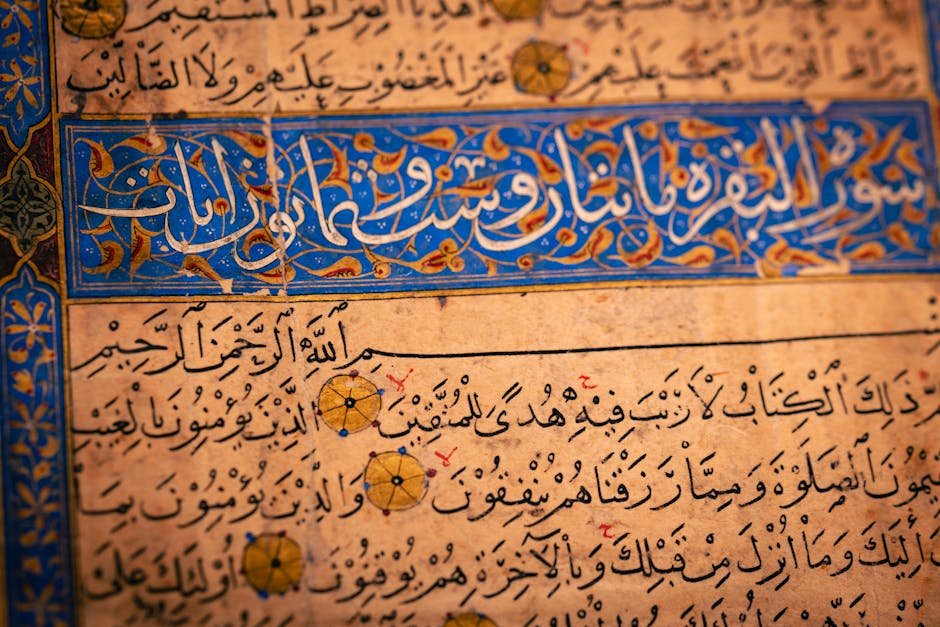 نستعين اهدنا الصراط المستقيم
صِرَاطَ الَّذِينَ أَنْعَمْتَ عَلَيْهِمْ غَيْرِ الْمَغْضُوبِ عَلَيْهِمْ وَلَا الضَّالِّينَ
سورة البقرة مايتان وست وثمانون ايات
بسم اللَّهِ الرَّحْمَنِ الرَّحِيمِ
ذَلِكَ الْكِتَابُ لَا رَيْبَ فِيْهِ هُدًى لِلْمُتَّقِيْنَ الَّذِيْنَ يُؤْمِنُونَ بِالْغَيْبِ
الصَّلَوةَ وَمِمَّا رَزَقْنَاهُمْ يُنْفِقُوْنَ وَالَّذِيْنَ يُؤْمِنُوْنَ بِمَا
إِلَيْكَ وَمَا أُنْزِلَ مِنْ قَبْلِكَ وَبِالْآخِرَةِ هُمْ يُوْقِنُوْنَ أُولَئِكَ عَلَى